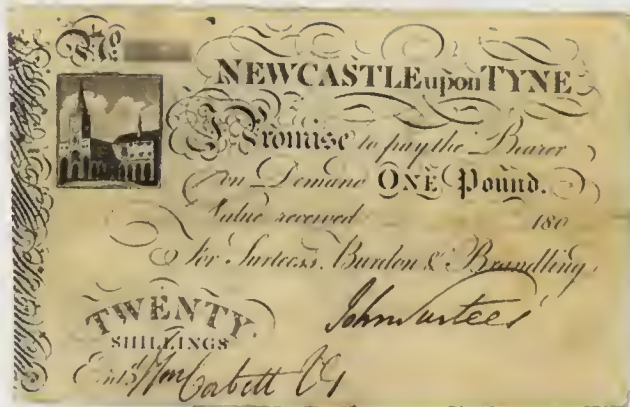 No
NEWCASTLE upon TYNE
I Promise to pay the Bearer
on Demand ONE Pound.
Value received 180
For Surtees, Burdon & Brandling,
John Surtees
TWENTY
SHILLINGS
Entd Wm Corbett